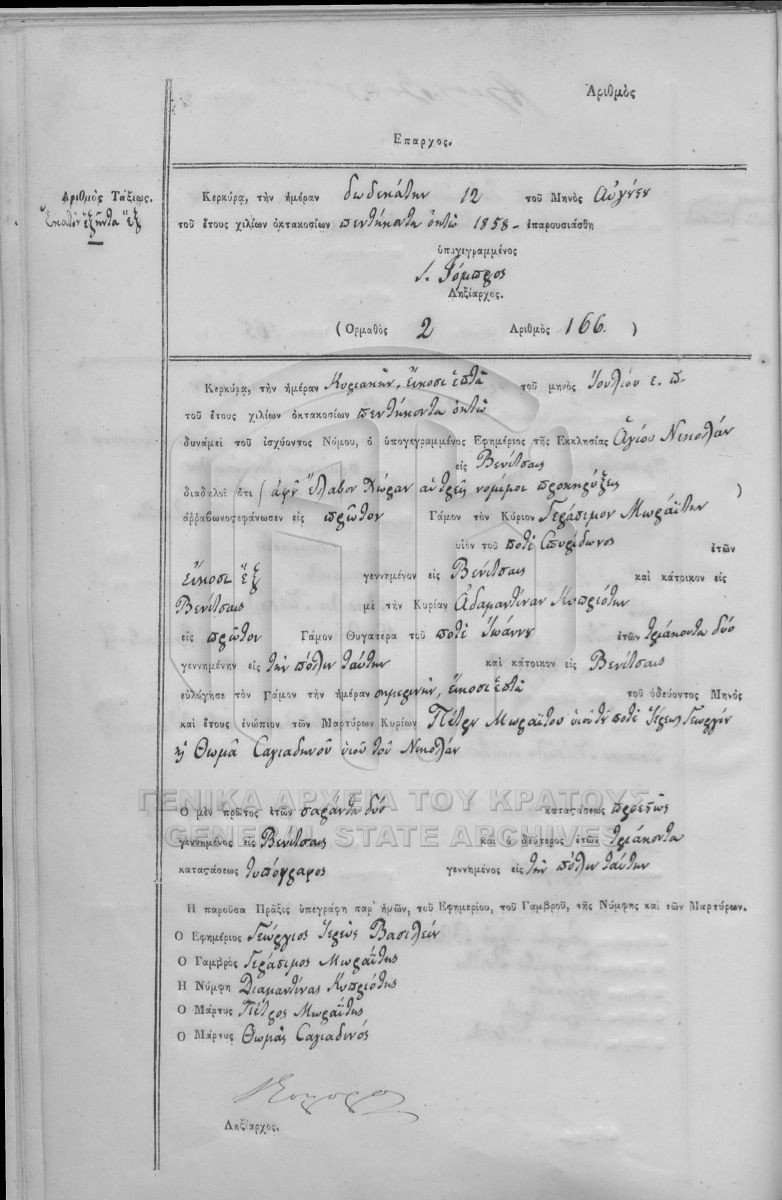 Ἀριθμὸς
Επαρχος.
Ἀριθμὸς Τάξεως.
Ἑκατὸν ἑξῆντα ἕξ
Κερκύρᾳ, τὴν ἡμέραν δωδεκάτην 12 τοῦ Μηνὸς Αὐγούστου
τοῦ ἔτους χιλίων ὀκτακοσίων πεντήκοντα ὀκτὼ 1858 - ἐπαρουσιάσθη
ὑπογεγραμμένος
Ληξίαρχος.
(Ορμαθὸς 2 Ἀριθμὸς 166.)
Κερκύρᾳ, τὴν ἡμέραν Κυριακὴν, εἴκοσι ἑπτὰ τοῦ μηνὸς Ἰουλίου ε. π.
τοῦ ἔτους χιλίων ὀκτακοσίων πεντήκοντα ὀκτὼ
δυνάμει τοῦ ἰσχύοντος Νόμου, ὁ ὑπογεγραμμένος Εφημέριος τῆς Εκκλησίας Ἁγίου Νικολάου
εἰς Βενίτσαις
διαδηλοῖ ὅτι (ἀφοῦ ἔλαβον χώραν αἱ τρεῖς νομίμοι προκηρύξεις)
ἀρραβωνοςεφάνωσεν εἰς πρῶτον Γάμον τὸν Κύριον Γεράσιμον Μωραΐτην
υἱὸν τοῦ ποτὲ Σπυρίδωνος ἐτῶν
εἴκοσι ἕξ γεννημένον εἰς Βενίτσαις καὶ κάτοικον εἰς
Βενίτσαις μὲ τὴν Κυρίαν Ἀδαμαντίναν Κυπριότην
εἰς πρῶτον Γάμον Θυγατέρα τοῦ ποτὲ Ἰωάννου ἐτῶν τριάκοντα δύο
γεννημένην εἰς τὴν πόλιν ταύτην καὶ κάτοικον εἰς Βενίτσαις
εὐλόγησε τὸν Γάμον τὴν ἡμέραν σημερινὴν, εἴκοσι ἑπτὰ τοῦ ὁδεύοντος Μηνὸς
καὶ ἔτους ἐνώπιον τῶν Μαρτύρων Κυρίων Πέτρου Μωραΐτου υἱοῦ τοῦ ποτὲ Ἱερέως Γεωργίου
ἢ Θωμᾶ Σαγιαδινοῦ υἱοῦ τοῦ Νικολάου
Ο μὲν πρῶτος ἐτῶν σαράντα δύο καταςάσεως προεστὼς
γεννημένος εἰς Βενίτσαις καὶ ὁ δεύτερος ἐτῶν τριάκοντα
καταςάσεως τυπογράφος γεννημένος εἰς τὴν πόλιν ταύτην
Η παροῦσα Πράξις ὑπεγράφη παρ' ἡμῶν, τοῦ Εφημερίου, τοῦ Γαμβροῦ, τῆς Νύμφης καὶ τῶν Μαρτύρων.
Ο Εφημέριος Γεώργιος Ἱερεὺς Βασιλείου
Ο Γαμβρὸς Γεράσιμος Μωραΐτης
Η Νύμφη Διαμαντίνας Κυπριότης
Ο Μάρτυς Πέτρος Μωραΐτης
Ο Μάρτυς Θωμᾶς Σαγιαδινός
Ληξίαρχος.
ΓΕΝΙΚΑ ΑΡΧΕΙΑ ΤΟΥ ΚΡΑΤΟΥΣ
GENERAL STATE ARCHIVES